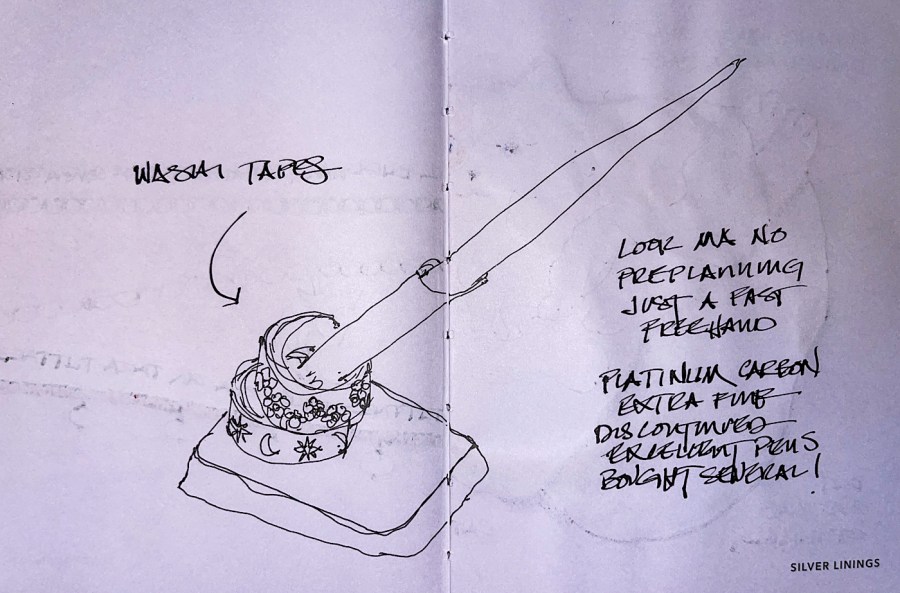 WASHI TAPES
LOOK MA NO
PREPLANNING
JUST A FAST
FREEHAND
PLATINUM CARBON
EXTRA FINE
DISCONTINUED
EXCELLENT PENS
BOUGHT SEVERAL!
SILVER LININGS